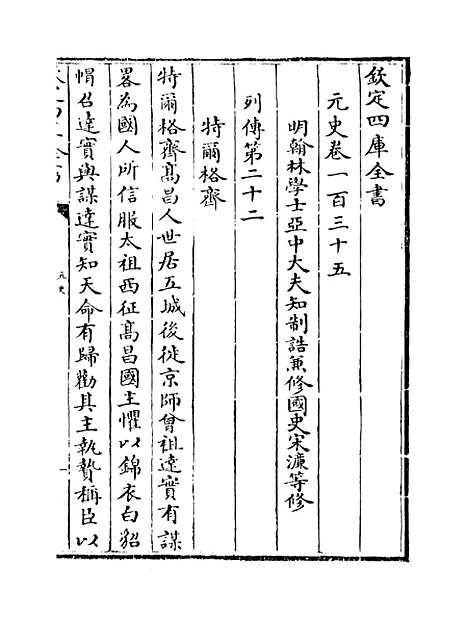 欽定四庫全書
元史卷一百三十五
明翰林學士亞中大夫知制誥兼修國史宋濂等修
列傳第二十二
特爾格齊
特爾格齊高昌人世居五城後徙京師曾祖達實有謀
畧為國人所信服太祖西征高昌國主懼以錦衣白貂
帽召達實與謀達實知天命有歸勸其主執贄稱臣以
元史
一